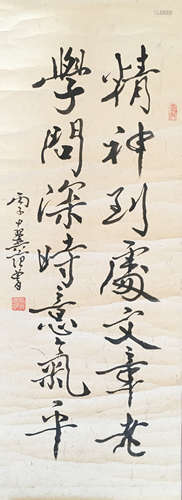 精神到處文章老
學問深時意氣平
丙子